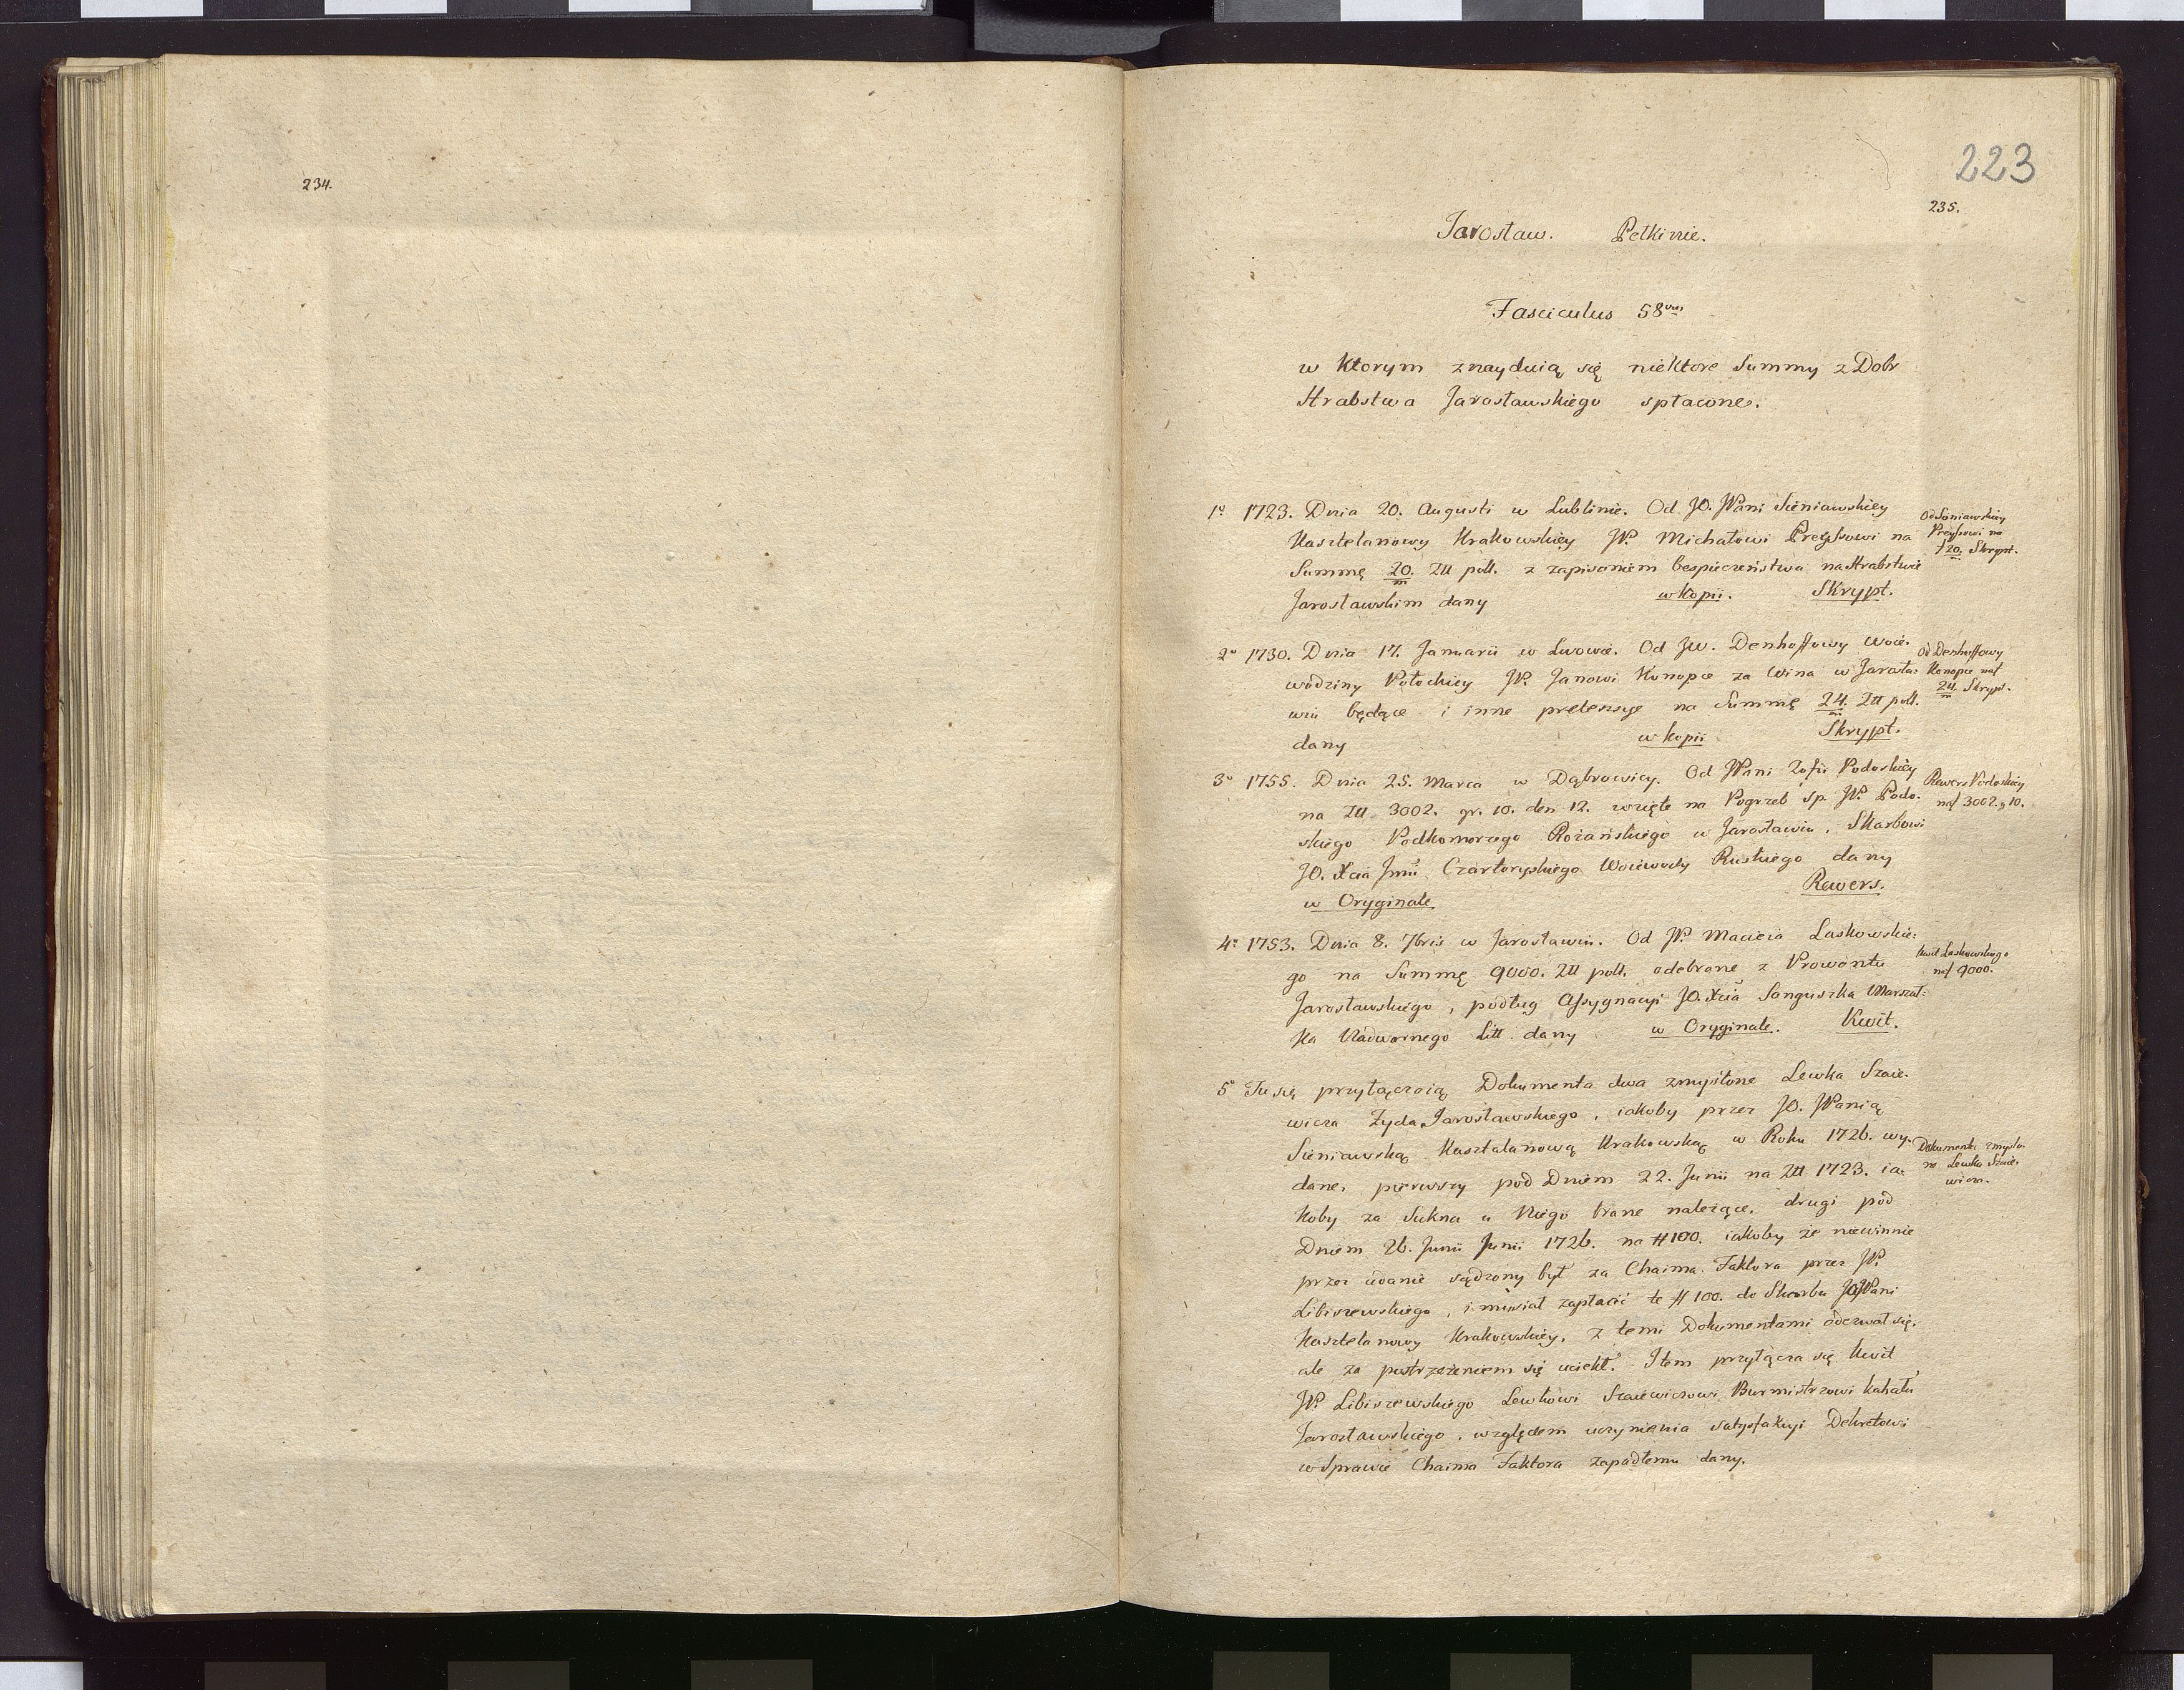 234.
223
235.
Jarosław. Pełkinie.
Fasciculus 58um
w ktorym znayduią się niektore Summy z Dobr
Hrabstwa Jarosławskiego spłacone.
1o 1723. Dnia 20. Augusti w Lublinie. Od JO. JPani Sieniawskiey
Kasztelanowy Krakowskiey JP. Michałowi Preyssowi na
Summę 20/m. Złł poll. z zapisaniem bespieczeństwa na Hrabstwie
Jarosławskim dany w kopii. Skrypt.
Od Sieniawskiey
Preyssowi na
f 20/m. Skrypt.
2o 1730. Dnia 17. Januarii w Lwowie. Od JW. Denhoffowy Woie-
wodziny Połockiey JP. Janowi Konopce za Wina w Jarosła-
wiu będące i inne pretensye na Summę 24/m. Złł poll.
dany w kopii Skrypt.
Od Denhoffowy
Konopce na f
24/m. Skrypt.
3o 1755. Dnia 25. Marca w Dąbrowicy. Od JPani Zofii Podoskiey
na Złł 3002. gr. 10. den 12. wzięte na Pogrzeb śp. JP. Podo-
skiego Podkomorzego Rożańskiego w Jarosławiu, Skarbowi
JO. Xcia Jmci Czartoryskiego Woiewody Ruskiego dany
w Oryginale Rewers.
Rewers Podoskiey
na f 3002. g 10.
4o 1753. Dnia 8. 7bris w Jarosławiu. Od JP. Macieia Laskowskie-
go na Summę 9000. Złł poll. odebrane z Prowentu
Jarosławskiego, podług Assygnacyi JO. Xcia Sanguszka Marszał-
ka Nadwornego Litt. dany w Oryginale. Kwit.
Kwit Laskowskiego
na f 9000.
5o Tu się przyłączaią Dokumenta dwa zmyślone Lewka Szaie-
wicza Żyda Jarosławskiego, iakoby przez JO. JPanią
Sieniawską Kasztalanową Krakowską w Roku 1726. wy-
dane, pierwszy pod Dniem 22. Junii na Złł 1723. ia-
koby za Sukna u Niego brane należące, drugi pod
Dniem 26. Junii Junii 1726. na # 100. iakoby że niewinnie
przez udanie sądzony był za Chaima Faktora przez JP.
Libiszewskiego, i musiał zapłacić te # 100. do Skarbu JO JPani
Kasztelanowy Krakowskiey, z temi Dokumentami odezwał się,
ale za postrzeżeniem się uciekł. Item przyłącza się Kwit
JP. Libiszewskiego Lewkowi Szaiewiczowi Burmistrzowi kahału
Jarosławskiego, względem uczynienia satysfakcyi Dekretowi
w Sprawie Chaima Faktora zapadłemu dany.
Dokumenta zmyślo-
ne Lewka Szaie-
wicza.